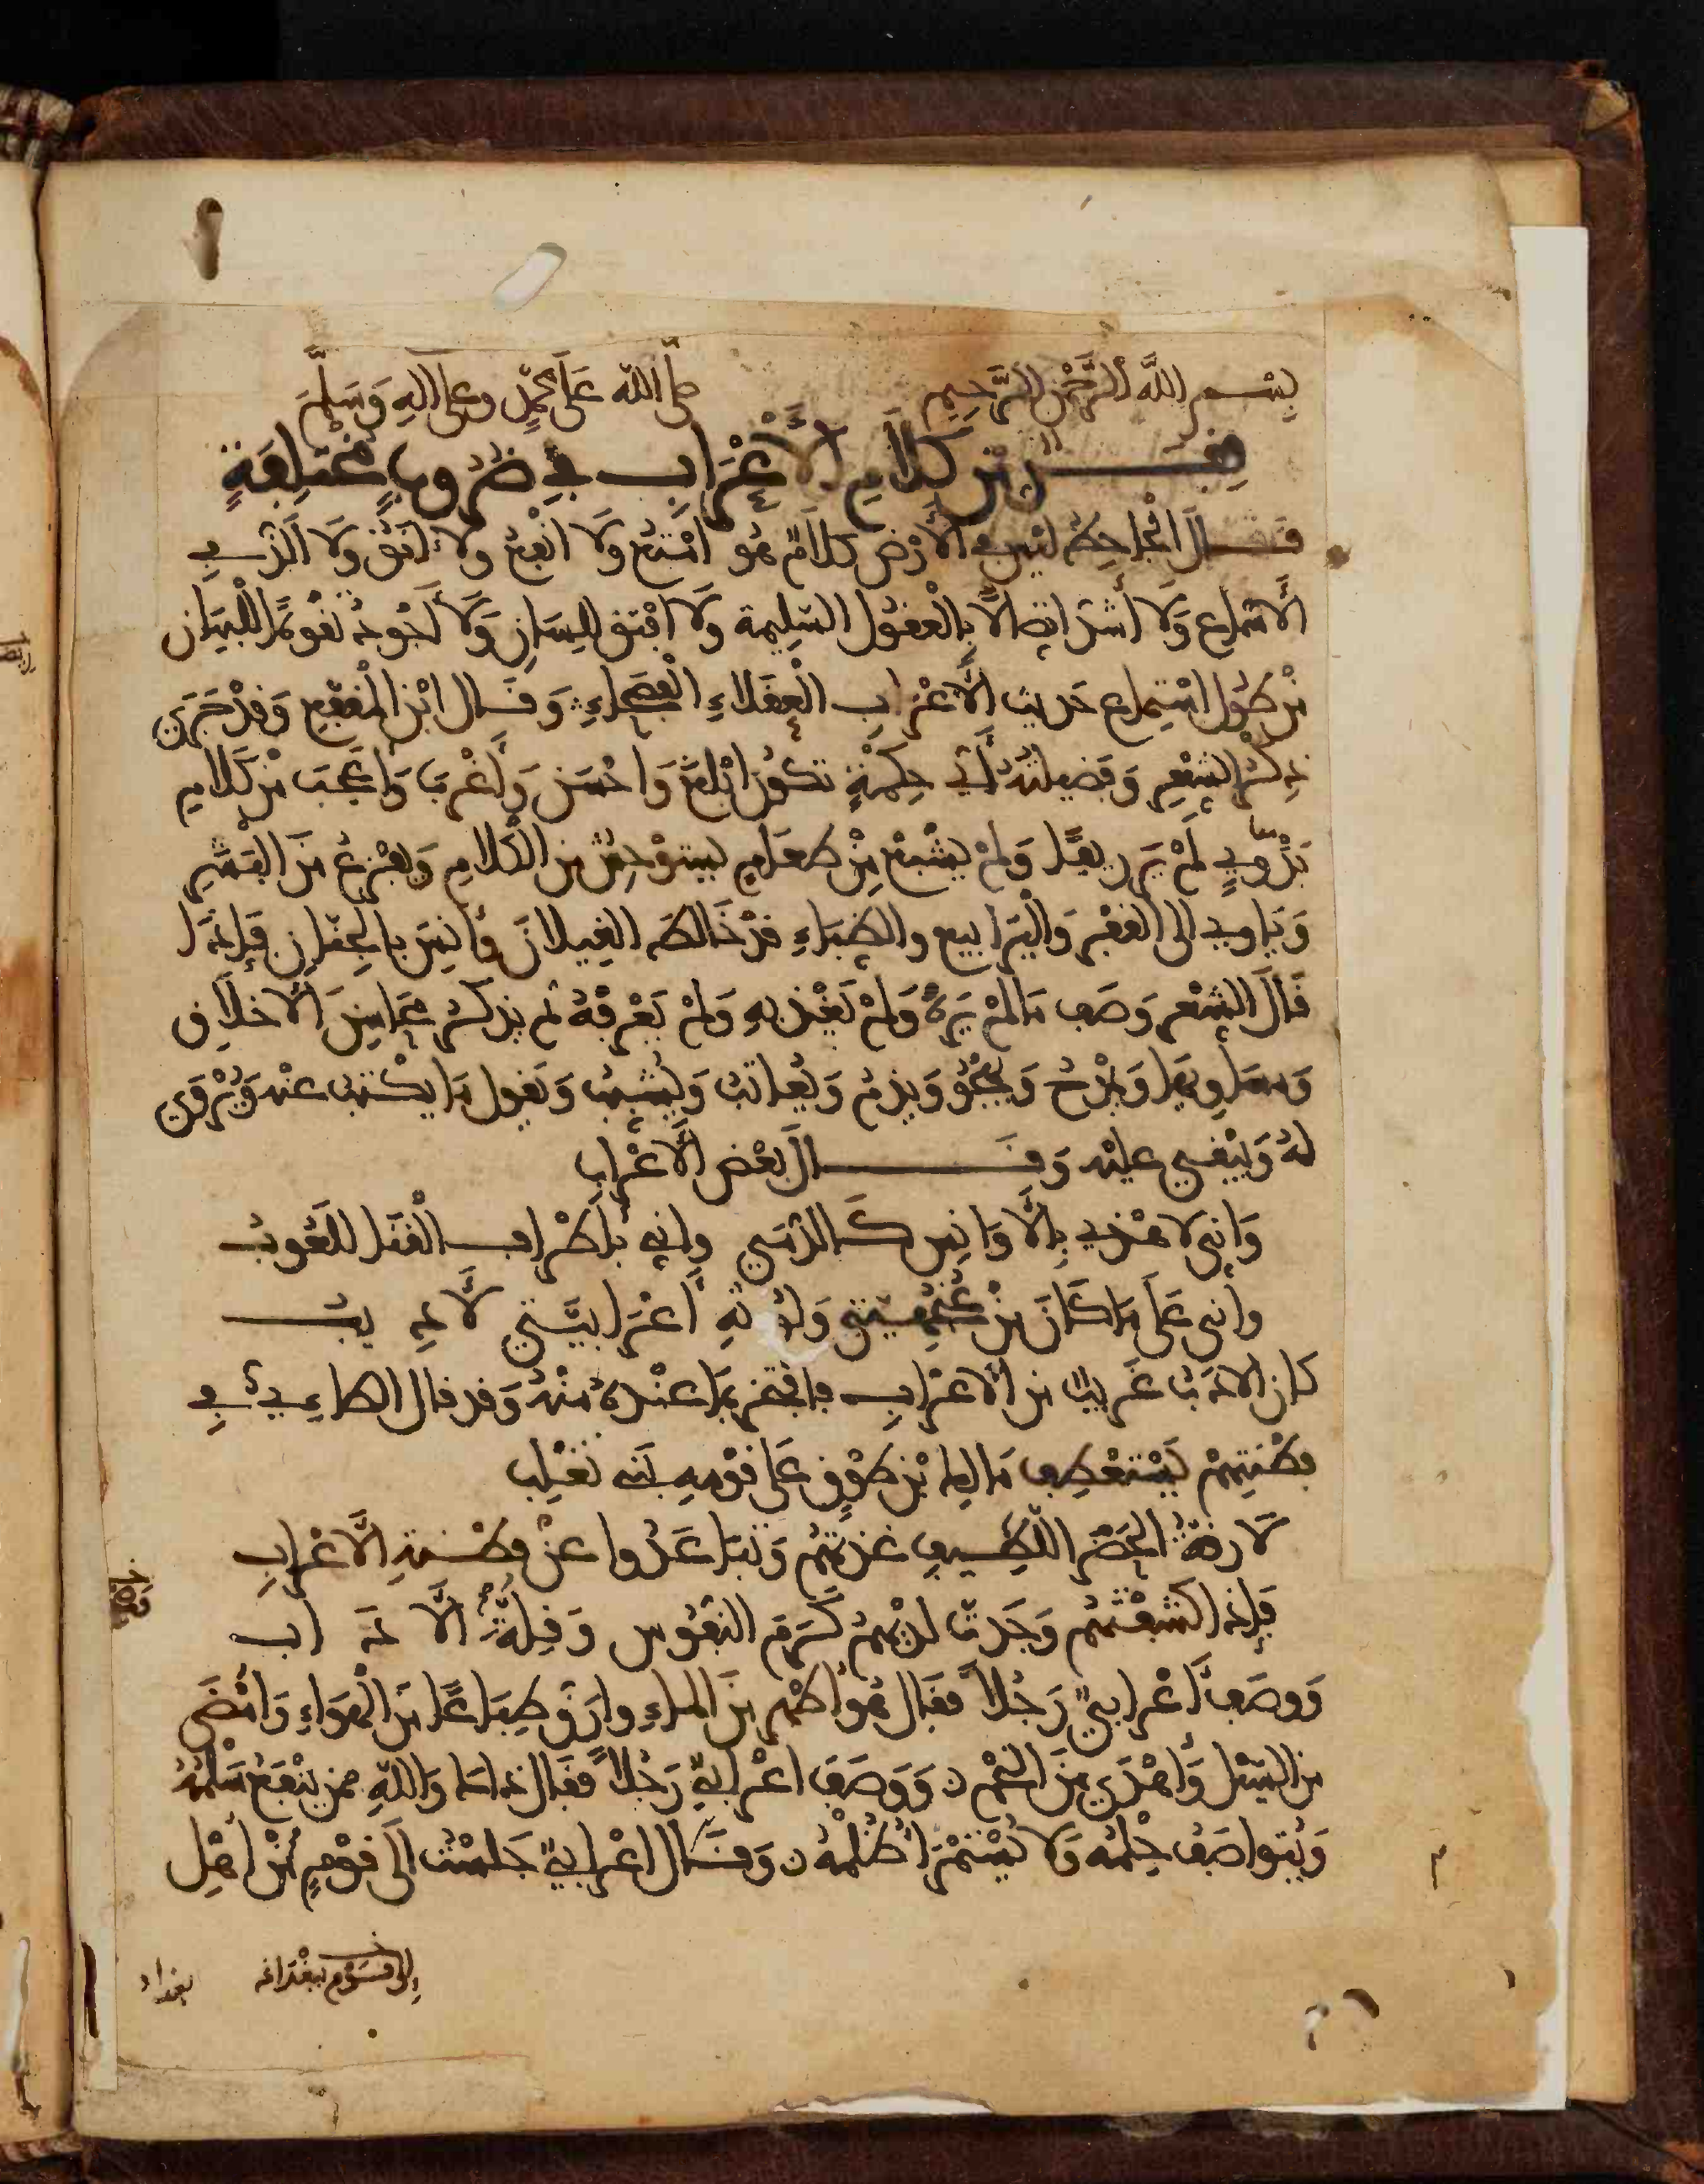 بِسْمِ اللَّهِ الرَّحْمٰنِ الرَّحِيمِ صلى الله عَلَى مُحَمَّدٍ وعلى آلهِ وَسَلَّمَ
فِقَرٌ مِّن كَلَامِ الْأَعْرَابِ فِي ضُرُوبٍ مُخْتَلِفَةٍ
قَالَ الْجَاحِظُ لَيْسَ فِي الْأَرْضِ كَلَامٌ هُوَ أَمْتَعُ وَلَا أَنْفَعُ وَلَا آنَقُ وَلَا أَلَذُّ فِي
الْأَسْمَاعِ وَلَا أَشَدُّ اتِّصَالًا بِالْعُقُولِ السَّلِيمَةِ وَلَا أَفْتَقُ لِلِّسَانِ وَلَا أَجْوَدُ تَقْوِيمًا لِلْبَيَانِ
مِنْ طُولِ اسْتِمَاعِ حَدِيثِ الْأَعْرَابِ الْعُقَلَاءِ الْفُصَحَاءِ وَقَالَ ابْنُ الْمُقَفَّعِ وَقَدْ جَرَى
ذِكْرُ الشِّعْرِ وَفَضِيلَتُهُ أَيُّ حِكْمَةٍ تَكُونُ أَبْلَغَ وَأَحْسَنَ وَأَغْرَبَ وَأَعْجَبَ مِنْ كَلَامِ
بَدْوِيٍّ لَمْ يَرَ رِيفًا وَلَمْ يَشْبَعْ مِنْ طَعَامٍ يَسْتَوْحِشُ مِنَ الْكَلَامِ وَيَفْزَعُ مِنَ الْبَشَرِ
وَيَأْوِي إِلَى الْقَفْرِ وَالْيَرَابِيعِ وَالظِّبَاءِ قَدْ خَالَطَ الْغِيلَانَ وَأَنِسَ بِالْجِنَّانِ فَإِذَا
قَالَ الشِّعْرَ وَصَفَ مَا لَمْ يَرَهُ وَلَمْ يُغْذَ بِهِ وَلَمْ يَعْرِفْهُ ثُمَّ يَذْكُرُ مَحَاسِنَ الْأَخْلَاقِ
وَمَسَاوِيَهَا وَيَمْدَحُ وَيَهْجُو وَيَذُمُّ وَيُعَاتِبُ وَيُشَبِّبُ وَيَقُولُ مَا يُكْتَبُ عَنْهُ وَيُرْوَى
لَهُ وَيَبْقَى عَلَيْهِ وَقَالَ بَعْضُ الْأَعْرَابِ
وَإِنِّي لَأَهْذِي بِالْأَوَانِسِ كَالدُّمَى وَإِنِّي بِأَطْرَافِ الْقَنَا لَلَعُوبُ
وَإِنِّي عَلَى مَا كَانَ مِنْ عُنْجُهِيَّتِي وَلُوثَةِ أَعْرَابِيَّتِي لَأَدِيبُ
كَانَ الْأَدَبُ غَرِيبًا مِنَ الْأَعْرَابِ فَافْتَخَرَ بِمَا عِنْدَهُ مِنْهُ وَقَدْ قَالَ الطَّائِيُّ فِي
فِطْنَتِهِمْ يَسْتَعْطِفُ مَالِكَ بْنَ طَوْقٍ عَلَى قَوْمِهِ بَنِي تَغْلِبَ
لَا رِقَّةُ الْحَضَرِ اللَّطِيفِ غَذَتْهُمُ وَتَبَاعَدُوا عَنْ فِطْنَةِ الْأَعْرَابِ
فَإِذَا كَشَفْتَهُمُ وَجَدْتَ لَدَيْهِمُ كَرَمَ النُّفُوسِ وَقِلَّةَ الْآدَابِ
وَوَصَفَ أَعْرَابِيٌّ رَجُلًا فَقَالَ هُوَ أَطْهَرُ مِنَ الْمَاءِ وَأَرَقُّ طِبَاعًا مِنَ الْهَوَاءِ وَأَمْضَى
مِنَ السَّيْلِ وَأَهْدَى مِنَ النَّجْمِ وَوَصَفَ أَعْرَابِيٌّ رَجُلًا فَقَالَ ذَاكَ وَاللهِ مِمَّنْ يَنْفَعُ سَلْمُهُ
وَيُتَوَاصَفُ حِلْمُهُ وَلَا يُسْتَمْرَأُ ظُلْمُهُ وَقَالَ أَعْرَابِيٌّ جَلَسْتُ إِلَى قَوْمٍ مِنْ أَهْلِ
إلى قوم ببغداد بغداد